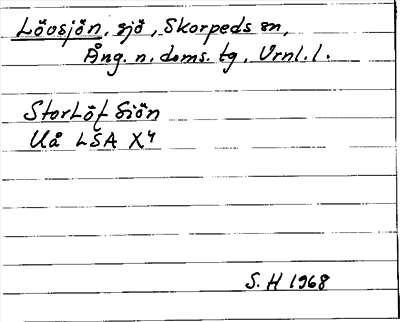 Lövsjön, sjö, Skorpeds sn,
Ång. n. doms. tg. Vrnl. l.
StorLöf Siön
Uå LSA X4
S. H 1968